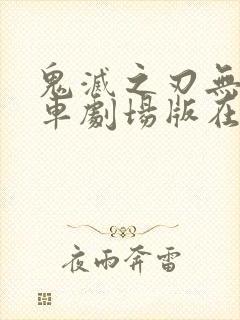 鬼滅之刃無
車劇場版在
夜雨奔雷